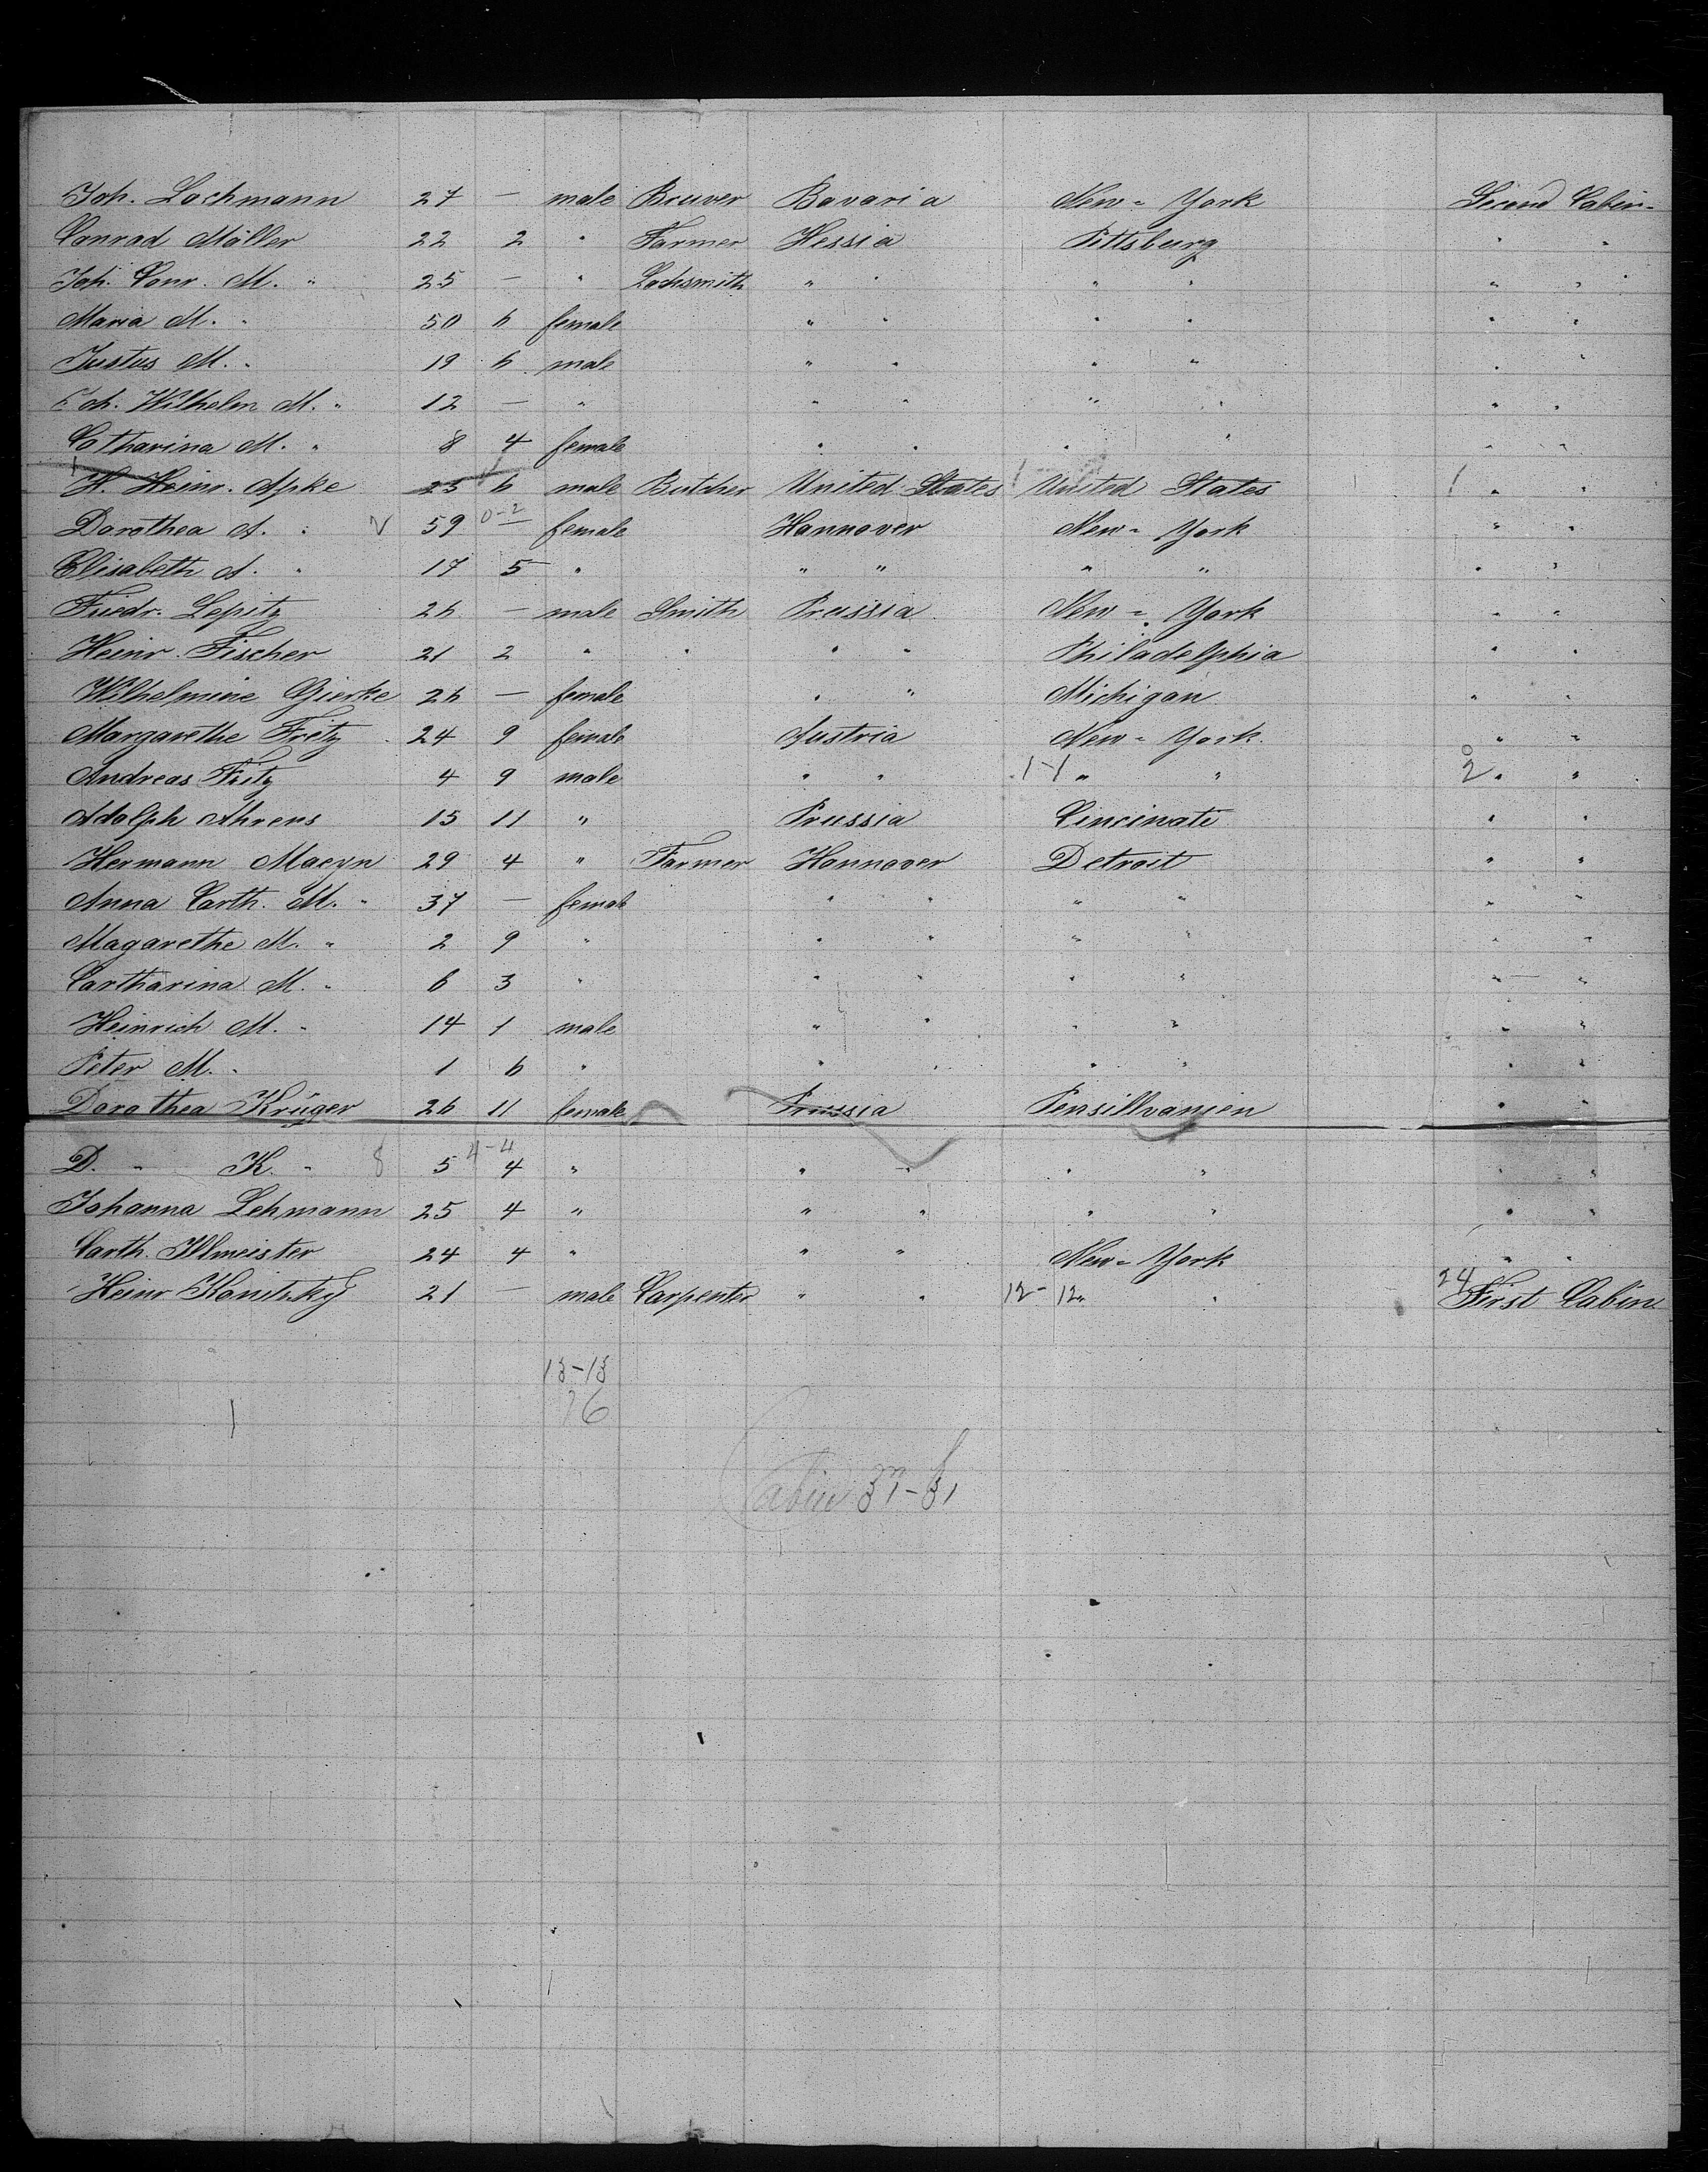 Joh. Lochmann 27 — male Bruver Bavaria New-York Second Cabin-
Conrad Möller 22 2 " Farmer Hessia Pittsburg " "
Joh. Conr. M. " 25 — " Locksmith " " " " " "
Maria M. " 50 6 female " " " " " "
Justus M. " 19 6 male " " " " " "
Joh. Wilhelm M. " 12 — " " " " " " "
Catharina M. " 8 4 female " " " " " "
H. Heinr. Apke 25 6 male Butcher United States United States 1 " "
Dorothea A. " 59 0-2 — female Hannover New-York " "
Elisabeth A. " 17 5 " " " " " " "
Friedr. Lepitz 26 — male Smith Prussia New-York " "
Heinr. Fischer 21 2 " " " " Philadelphia " "
Wilhelmine Gierke 26 — female " " Michigan " "
Margarethe Fritz 24 9 female Austria New-York " "
Andreas Fritz 4 9 male " " 1-1 " " 2 " "
Adolph Ahrens 15 11 " Prussia Cincinate " "
Hermann Maeyn 29 4 " Farmer Hannover Detroit " "
Anna Carth. M. " 37 — female " " " " " "
Magarethe M. " 2 9 " " " " " " "
Cartharina M. " 6 3 " " " " " " "
Heinrich M. " 14 1 male " " " " " "
Peter M. " 1 6 " " " " " " "
Dorothea Krüger 26 11 female Prussia Pensillvanien " "
D. " K. " 8 5 4-4 4 " " " " " " "
Johanna Lehmann 25 4 " " " " " " "
Carth. Illmeister 24 4 " " " New-York " "
Heinr Konitzky 21 — male Carpenter " " 12-12 " " 24 First Cabin
13-13
26
Cabin 37-